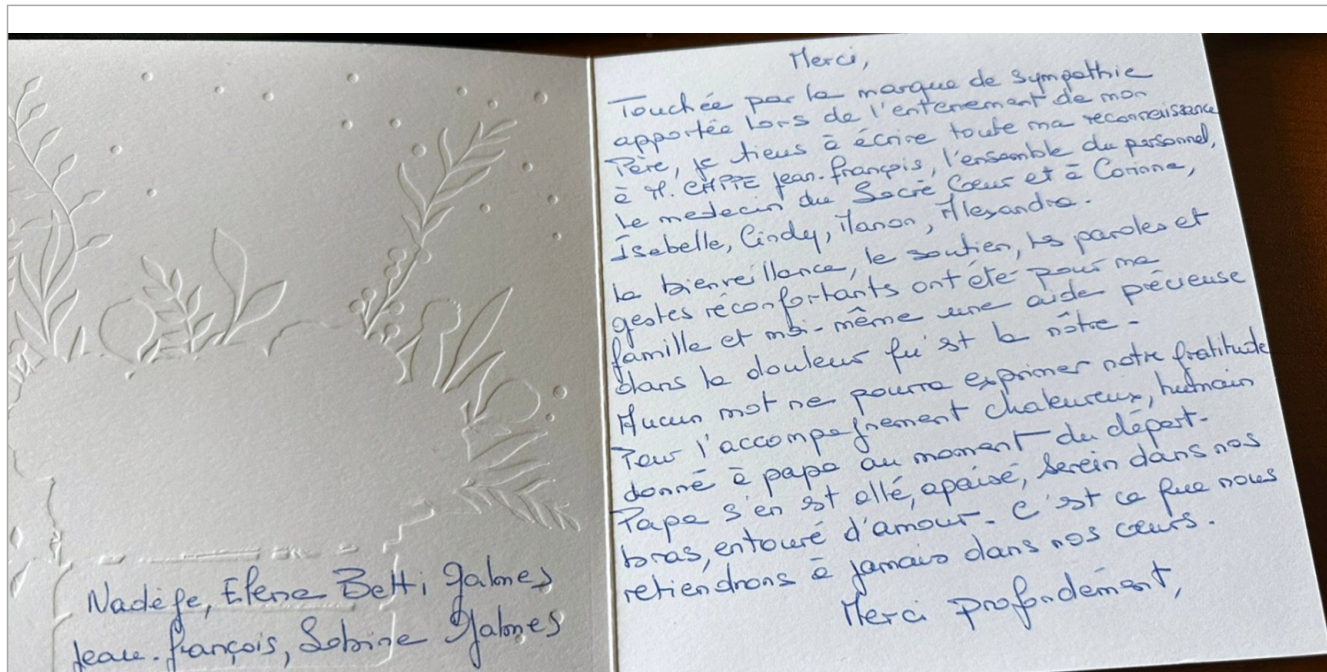 Nadège, Elena Betti Galmes
Jean-François, Sabine Galmes
Merci,
Touchée par la marque de sympathie
apportée lors de l'enterrement de mon
Père, je tiens à écrire toute ma reconnaissance
à M. Jean-François, l'ensemble du personnel,
le medecin du Sacré Coeur et à Corinne,
Isabelle, Cindy, Manon, Alexandra.
la bienveillance, le soutien, les paroles et
gestes réconfortants ont été pour ma
famille et moi-même une aide précieuse
dans la douleur qu'est la nôtre.
Aucun mot ne pourra exprimer notre gratitude
Pour l'accompagnement chaleureux, humain
donné à papa au moment du départ.
Papa s'en est allé, apaisé, serein dans nos
bras, entouré d'amour. C'est ce que nous
retiendrons à jamais dans nos cœurs.
Merci profondément,